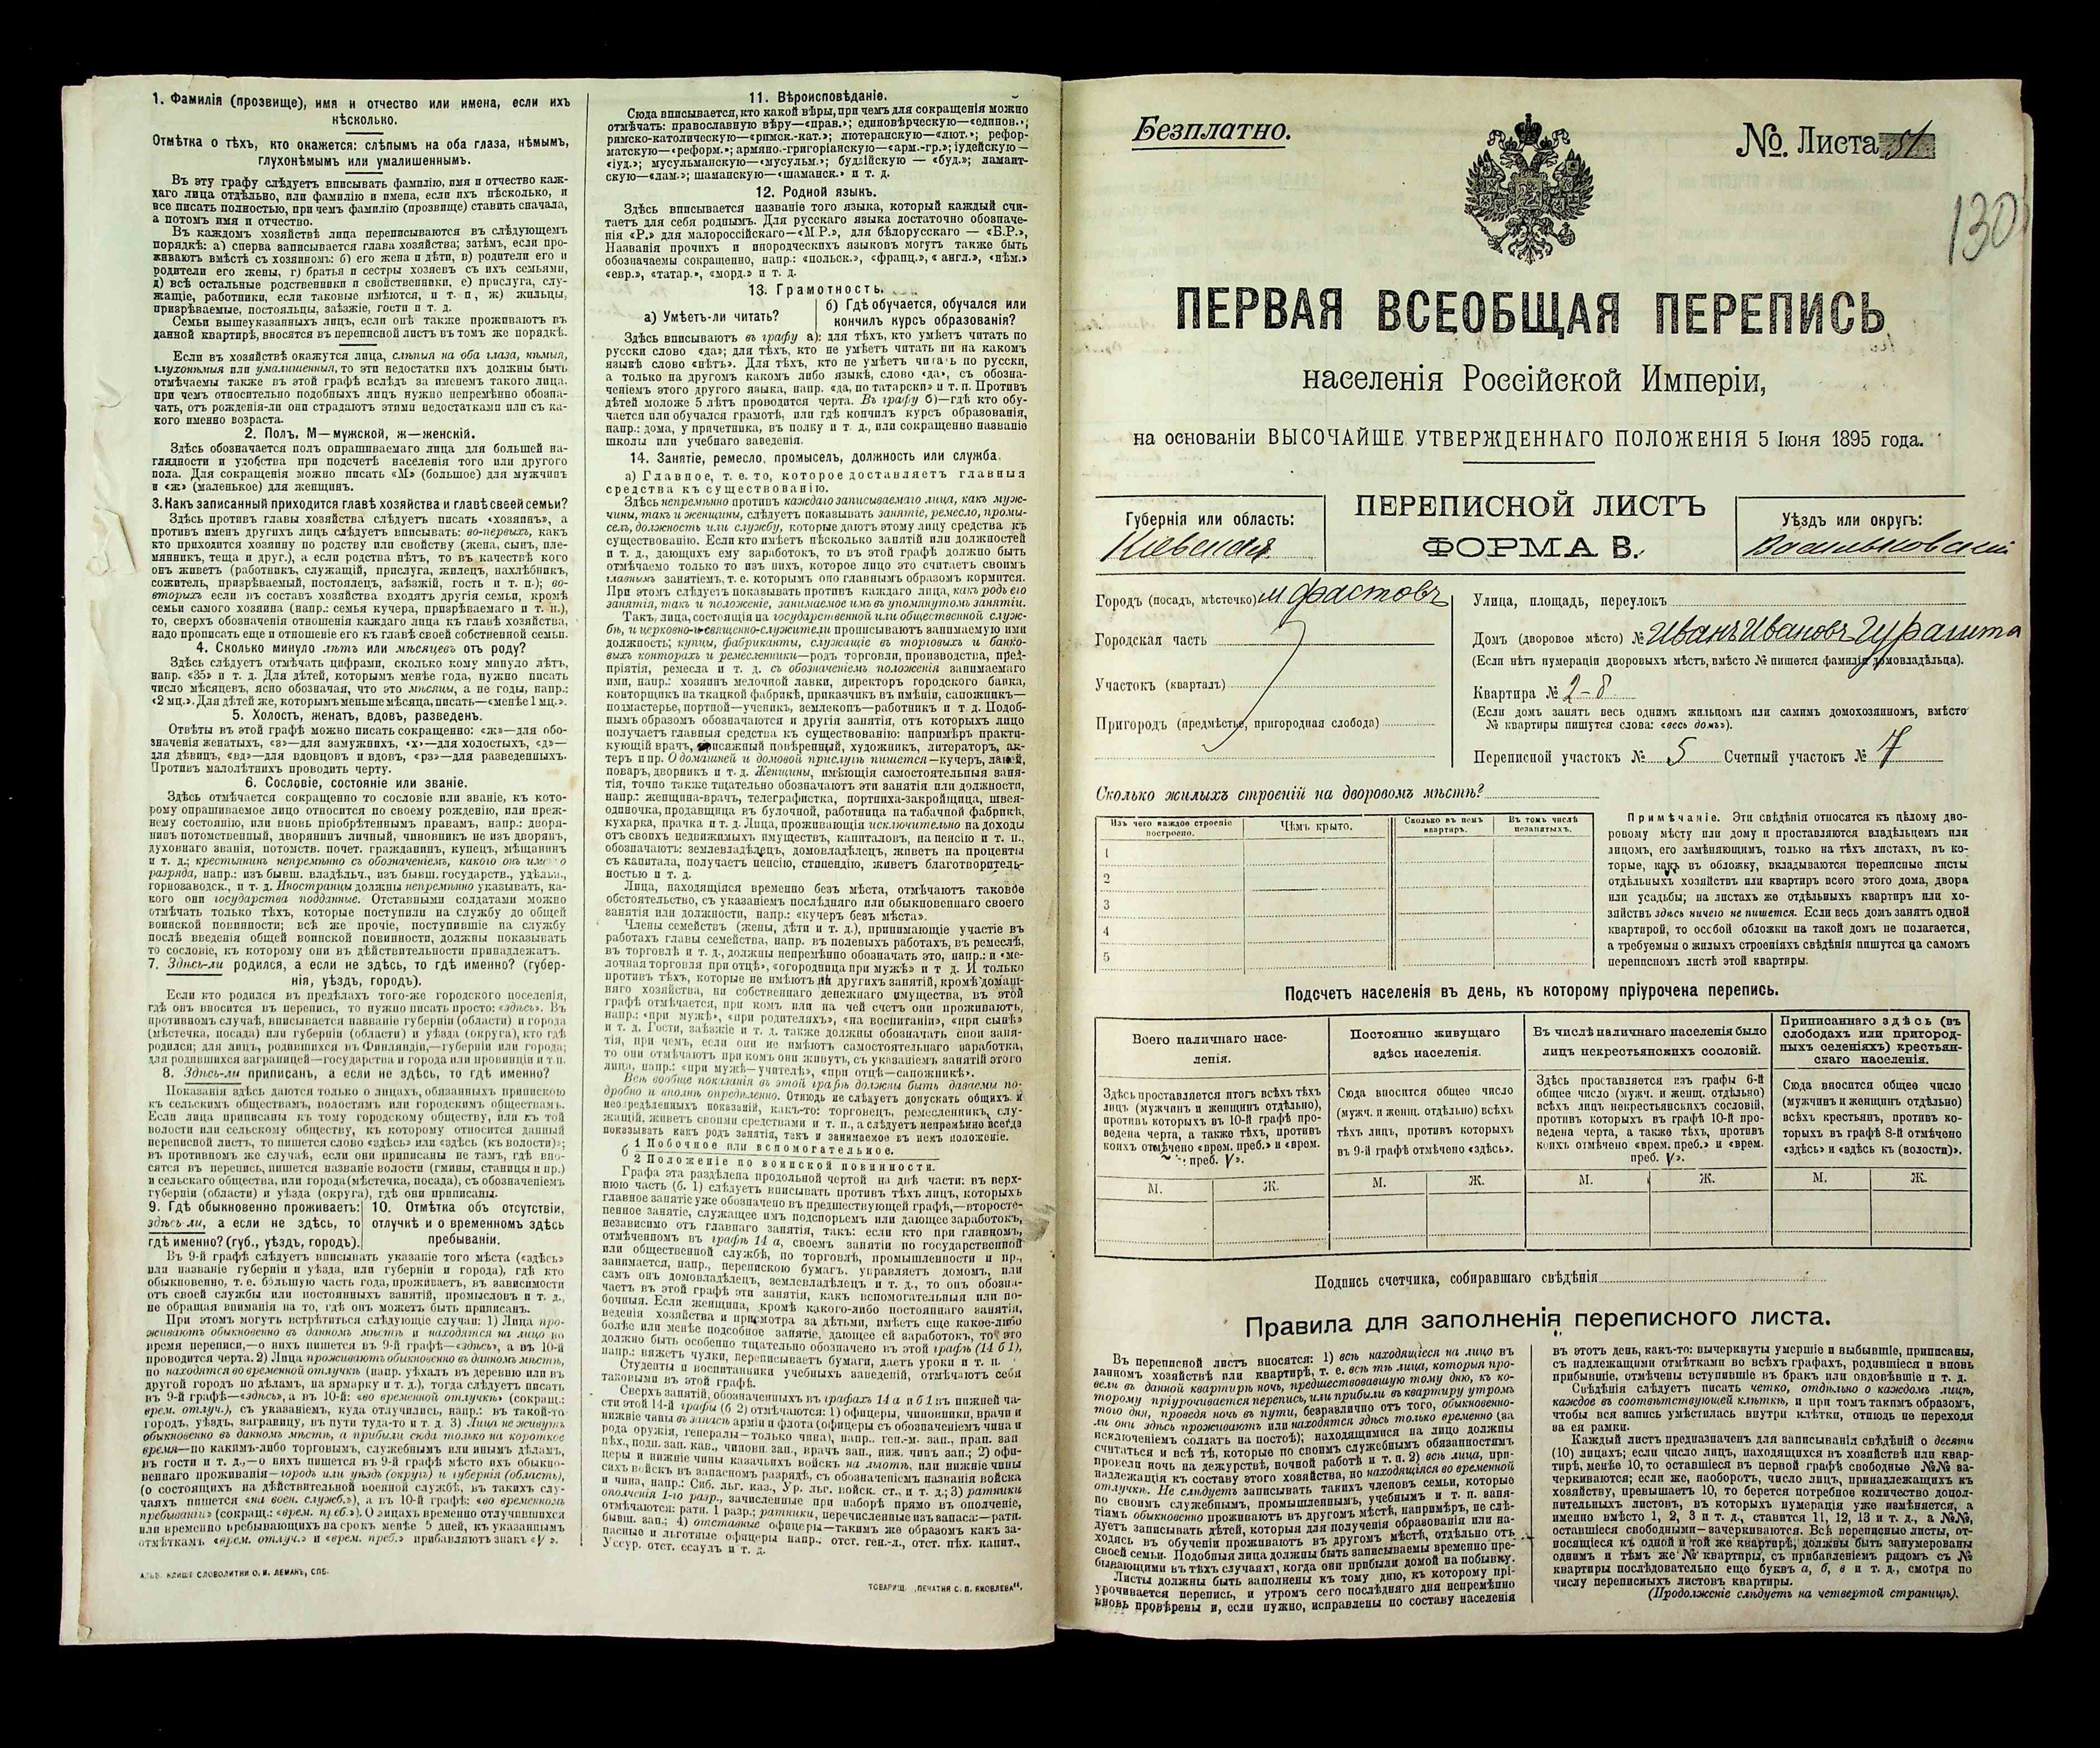 1. Фамилія (прозвище), имя и отчество или имена, если ихъ
нѣсколько.
Отмѣтка о тѣхъ, кто окажется: слѣпымъ на оба глаза, нѣмымъ,
глухонѣмымъ или умалишеннымъ.
Въ эту графу слѣдуетъ вписывать фамилію, имя и отчество каж-
даго лица отдѣльно, или фамилію и имена, если ихъ нѣсколько, и
все писать полностью, при чемъ фамилію (прозвище) ставить сначала,
а потомъ имя и отчество.
Въ каждомъ хозяйствѣ лица переписываются въ слѣдующемъ
порядкѣ: а) сперва записывается глава хозяйства; затѣмъ, если про-
живаютъ вмѣстѣ съ хозяиномъ: б) его жена и дѣти, в) родители его и
родители его жены, г) братья и сестры хозяевъ съ ихъ семьями,
д) всѣ остальные родственники и свойственники, е) прислуга, слу-
жащіе, работники, если таковые имѣются, и т. п, ж) жильцы,
призрѣваемые, постояльцы, заѣзжіе, гости и т. д.
Семьи вышеуказанныхъ лицъ, если онѣ также проживаютъ въ
данной квартирѣ, вносятся въ переписной листъ въ томъ же порядкѣ.
Если въ хозяйствѣ окажутся лица, слѣпыя на оба глаза, нѣмыя,
глухонѣмыя или умалишенныя, то эти недостатки ихъ должны быть
отмѣчаемы также въ этой графѣ вслѣдъ за именемъ такого лица.
при чемъ относительно подобныхъ лицъ нужно непремѣнно обозна-
чать, отъ рожденія-ли они страдаютъ этими недостатками или съ ка-
кого именно возраста.
2. Полъ. М—мужской, ж—женскій.
Здѣсь обозначается полъ опрашиваемаго лица для большей на-
глядности и удобства при подсчетѣ населенія того или другого
пола. Для сокращенія можно писать «М» (большое) для мужчинъ
и «ж» (маленькое) для женщинъ.
3. Какъ записанный приходится главѣ хозяйства и главѣ своей семьи?
Здѣсь противъ главы хозяйства слѣдуетъ писать «хозяинъ», а
противъ именъ другихъ лицъ слѣдуетъ вписывать: во-первыхъ, какъ
кто приходится хозяину по родству или свойству (жена, сынъ, пле-
мянникъ, теща и друг.), а если родства нѣтъ, то въ качествѣ кого
онъ живетъ (работникъ, служащій, прислуга, жилецъ, нахлѣбникъ,
сожитель, призрѣваемый, постоялецъ, заѣзжій, гость и т. п.); во-
вторыхъ если въ составъ хозяйства входятъ другія семьи, кромѣ
семьи самого хозяина (напр.: семья кучера, призрѣваемаго и т. п.),
то, сверхъ обозначенія отношенія каждаго лица къ главѣ хозяйства,
надо прописать еще и отношеніе его къ главѣ своей собственной семьи.
4. Сколько минуло лѣтъ или мѣсяцевъ отъ роду?
Здѣсь слѣдуетъ отмѣчать цифрами, сколько кому минуло лѣтъ,
напр. «35» и т. д. Для дѣтей, которымъ менѣе года, нужно писать
число мѣсяцевъ, ясно обозначая, что это мѣсяцы, а не годы, напр.:
«2 мц.». Для дѣтей же, которымъ меньше мѣсяца, писать—«менѣе 1 мц.».
5. Холостъ, женатъ, вдовъ, разведенъ.
Отвѣты въ этой графѣ можно писать сокращенно: «ж»—для обо-
значенія женатыхъ, «з»—для замужнихъ, «х»—для холостыхъ, «д»—
для дѣвицъ, «вд»—для вдовцовъ и вдовъ, «рз»—для разведенныхъ.
Противъ малолѣтнихъ проводить черту.
6. Сословіе, состояніе или званіе.
Здѣсь отмѣчается сокращенно то сословіе или званіе, къ кото-
рому опрашиваемое лицо относится по своему рожденію, или преж-
нему состоянію, или вновь пріобрѣтеннымъ правамъ, напр.: дворя-
нинъ потомственный, дворянинъ личный, чиновникъ не изъ дворянъ,
духовнаго званія, потомств. почет. гражданинъ, купецъ, мѣщанинъ
и т. д.; крестьянинъ непремѣнно съ обозначеніемъ, какого онъ имен о
разряда, напр.: изъ бывш. владѣльч., изъ бывш. государств., удѣльн.,
горнозаводск., и т. д. Иностранцы должны непремѣнно указывать, ка-
кого они государства подданные. Отставными солдатами можно
отмѣчать только тѣхъ, которые поступили на службу до общей
воинской повинности; всѣ же прочіе, поступившіе на службу
послѣ введенія общей воинской повинности, должны показывать
то сословіе, къ которому они въ дѣйствительности принадлежатъ.
7. Здѣсь-ли родился, а если не здѣсь, то гдѣ именно? (губер-
нія, уѣздъ, городъ).
Если кто родился въ предѣлахъ того-же городского поселенія,
гдѣ онъ вносится въ перепись, то нужно писать просто: «здѣсь». Въ
противномъ случаѣ, вписывается названіе губерніи (области) и города
(мѣстечка, посада) или губерніи (области) и уѣзда (округа), кто гдѣ
родился; для лицъ, родившихся въ Финляндіи,—губерніи или города;
для родившихся заграницей—государства и города или провинціи и т.п.
8. Здѣсь-ли приписанъ, а если не здѣсь, то гдѣ именно?
Показанія здѣсь даются только о лицахъ, обязанныхъ припискою
къ сельскимъ обществамъ, волостямъ или городскимъ обществамъ.
Если лица приписаны къ тому городскому обществу, или къ той
волости или сельскому обществу, къ которому относится данный
переписной листъ, то пишется слово «здѣсь» или «здѣсь (къ волости)»;
въ противномъ же случаѣ, если они приписаны не тамъ, гдѣ вно-
сятся въ перепись, пишется названіе волости (гмины, станицы и пр.)
и сельскаго общества, или города (мѣстечка, посада), съ обозначеніемъ
губерніи (области) и уѣзда (округа), гдѣ они приписаны.
9. Гдѣ обыкновенно проживаетъ:
здѣсь ли, а если не здѣсь, то
гдѣ именно? (губ., уѣздъ, городъ).
10. Отмѣтка объ отсутствіи,
отлучкѣ и о временномъ здѣсь
пребываніи.
Въ 9-й графѣ слѣдуетъ вписывать указаніе того мѣста («здѣсь»
или названіе губерніи и уѣзда, или губерніи и города), гдѣ кто
обыкновенно, т. е. бóльшую часть года, проживаетъ, въ зависимости
отъ своей службы или постоянныхъ занятій, промысловъ и т. д.,
не обращая вниманія на то, гдѣ онъ можетъ быть приписанъ.
При этомъ могутъ встрѣтиться слѣдующіе случаи: 1) Лица про-
живаютъ обыкновенно въ данномъ мѣстѣ и находятся на лицо во
время переписи,—о нихъ пишется въ 9-й графѣ—«здѣсь», а въ 10-й
проводится черта. 2) Лица проживаютъ обыкновенно въ данномъ мѣстѣ,
но находятся во временной отлучкѣ (напр. уѣхалъ въ деревню или въ
другой городъ по дѣламъ, на ярмарку и т. д.), тогда слѣдуетъ писать
въ 9-й графѣ—«здѣсь», а въ 10-й: «во временной отлучкѣ» (сокращ.:
врем. отлуч.), съ указаніемъ, куда отлучились, напр.: въ такой-то
городъ, уѣздъ, заграницу, въ пути туда-то и т. д. 3) Лица не живутъ
обыкновенно въ данномъ мѣстѣ, а прибыли сюда только на короткое
время—по какимъ-либо торговымъ, служебнымъ или инымъ дѣламъ,
въ гости и т. д.,—о нихъ пишется въ 9-й графѣ мѣсто ихъ обыкно-
веннаго проживанія—городъ или уѣздъ (округъ) и губернія (область),
(о состоящихъ на дѣйствительной военной службѣ, въ такихъ слу-
чаяхъ пишется «на воен. службѣ»), а въ 10-й графѣ: «во временномъ
пребываніи» (сокращ.: «врем. преб.»). О лицахъ временно отлучившихся
или временно пребывающихъ на срокъ менѣе 5 дней, къ указаннымъ
отмѣткамъ «врем. отлуч.» и «врем. преб.» прибавляютъ знакъ «V».
СЛОВОЛИТНИ О. И. ЛЕМАНЪ, СПБ.
11. Вѣроисповѣданіе.
Сюда вписывается, кто какой вѣры, при чемъ для сокращенія можно
отмѣчать: православную вѣру—«прав.»; единовѣрческую—«единов.»;
римско-католическую—«римск.-кат.»; лютеранскую—«лют.»; рефор-
матскую—«реформ.»; армяно.-григоріанскую—«арм.-гр.»; іудейскую—
«іуд.»; мусульманскую—«мусульм.»; буддійскую — «буд.»; ламаит-
скую—«лам.»; шаманскую—«шаманск.» и т. д.
12. Родной языкъ.
Здѣсь вписывается названіе того языка, который каждый счи-
таетъ для себя роднымъ. Для русскаго языка достаточно обозначе-
нія «Р.» для малороссійскаго—«М.Р.», для бѣлорусскаго — «Б.Р.»,
Названія прочихъ и инородческихъ языковъ могутъ также быть
обозначаемы сокращенно, напр.: «польск.», «франц.», «англ.», «нѣм.»
«евр.», «татар.», «морд.» и т. д.
13. Грамотность.
а) Умѣетъ-ли читать?
б) Гдѣ обучается, обучался или
кончилъ курсъ образованія?
Здѣсь вписываютъ въ графу а): для тѣхъ, кто умѣетъ читать по
русски слово «да»; для тѣхъ, кто не умѣетъ читать ни на какомъ
языкѣ слово «нѣтъ». Для тѣхъ, кто не умѣетъ читать по русски,
а только на другомъ какомъ либо языкѣ, слово «да», съ обозна-
ченіемъ этого другого языка, напр. «да, по татарски» и т. п. Противъ
дѣтей моложе 5 лѣтъ проводится черта. Въ графу б)—гдѣ кто обу-
чается или обучался грамотѣ, или гдѣ кончилъ курсъ образованія,
напр.: дома, у причетника, въ полку и т. д., или сокращенно названіе
школы или учебнаго заведенія.
14. Занятіе, ремесло, промыселъ, должность или служба.
а) Главное, т. е. то, которое доставляетъ главныя
средства къ существованію.
Здѣсь непремѣнно противъ каждаго записываемаго лица, какъ муж-
чины, такъ и женщины, слѣдуетъ показывать занятіе, ремесло, промы-
селъ, должность или службу, которые даютъ этому лицу средства къ
существованію. Если кто имѣетъ нѣсколько занятій или должностей
и т. д., дающихъ ему заработокъ, то въ этой графѣ должно быть
отмѣчаемо только то изъ нихъ, которое лицо это считаетъ своимъ
главнымъ занятіемъ, т. е. которымъ оно главнымъ образомъ кормится.
При этомъ слѣдуетъ показывать противъ каждаго лица, какъ родъ его
занятія, такъ и положеніе, занимаемое имъ въ упомянутомъ занятіи.
Такъ, лица, состоящія на государственной или общественной служ-
бѣ, и церковно-и-священно-служители прописываютъ занимаемую ими
должность; купцы, фабриканты, служащіе въ торговыхъ и банко-
выхъ конторахъ и ремесленники—родъ торговли, производства, пред-
пріятія, ремесла и т. д. съ обозначеніемъ положенія занимаемаго
ими, напр.: хозяинъ мелочной лавки, директоръ городского банка,
конторщикъ на ткацкой фабрикѣ, приказчикъ въ имѣніи, сапожникъ—
подмастерье, портной—ученикъ, землекопъ—работникъ и т. д. Подоб-
нымъ образомъ обозначаются и другія занятія, отъ которыхъ лицо
получаетъ главныя средства къ существованію: напримѣръ практи-
кующій врачъ, присяжный повѣренный, художникъ, литераторъ, ак-
теръ и пр. О домашней и домовой прислугѣ пишется—кучеръ, лакей,
поваръ, дворникъ и т. д. Женщины, имѣющія самостоятельныя заня-
тія, точно также тщательно обозначаютъ эти занятія или должности,
напр.: женщина-врачъ, телеграфистка, портниха-закройщица, швея-
одиночка, продавщица въ булочной, работница на табачной фабрикѣ,
кухарка, прачка и т. д. Лица, проживающія исключительно на доходы
отъ своихъ недвижимыхъ имуществъ, капиталовъ, на пенсію и т. п.,
обозначаютъ: землевладѣлецъ, домовладѣлецъ, живетъ на проценты
съ капитала, получаетъ пенсію, стипендію, живетъ благотворитель-
ностью и т. д.
Лица, находящіяся временно безъ мѣста, отмѣчаютъ таковое
обстоятельство, съ указаніемъ послѣдняго или обыкновеннаго своего
занятія или должности, напр.: «кучеръ безъ мѣста».
Члены семейства (жены, дѣти и т. д.), принимающіе участіе въ
работахъ главы семейства, напр. въ полевыхъ работахъ, въ ремеслѣ,
въ торговлѣ и т. д., должны непремѣнно обозначать это, напр.: и «ме-
лочная торговля при отцѣ», «огородница при мужѣ» и т д. И только
противъ тѣхъ, которые не имѣютъ ни другихъ занятій, кромѣ домаш-
няго хозяйства, ни собственнаго денежнаго имущества, въ этой
графѣ отмѣчается, при комъ или на чей счетъ они проживаютъ,
напр.: «при мужѣ», «при родителяхъ», «на воспитаніи», «при сынѣ»
и т. д. Гости, заѣзжіе и т. д. также должны обозначать свои заня-
тія, при чемъ, если они не имѣютъ самостоятельнаго заработка,
то они отмѣчаютъ при комъ они живутъ, съ указаніемъ занятій этого
лица, напр.: «при мужѣ—учителѣ», «при отцѣ—сапожникѣ».
Всѣ вообще показанія въ этой графѣ должны быть даваемы по-
дробно и вполнѣ опредѣленно. Отнюдь не слѣдуетъ допускать общихъ и
неопредѣленныхъ показаній, какъ-то: торговецъ, ремесленникъ, слу-
жащій, живетъ своими средствами и т. п., а слѣдуетъ непремѣнно всегда
показывать какъ родъ занятія, такъ и занимаемое въ немъ положеніе.
б 1 Побочное или вспомогательное.
2 Положеніе по воинской повинности.
Графа эта раздѣлена продольной чертой на двѣ части: въ верх-
нюю часть (б. 1) слѣдуетъ вписывать противъ тѣхъ лицъ, которыхъ
главное занятіе уже обозначено въ предшествующей графѣ,—второсте-
пенное занятіе, служащее имъ подспорьемъ или дающее заработокъ,
независимо отъ главнаго занятія, такъ: если кто при главномъ,
отмѣченномъ въ графѣ 14 а, своемъ занятіи по государственной
или общественной службѣ, по торговлѣ, промышленности и пр.,
занимается, напр., перепискою бумагъ, управляетъ домомъ, или
самъ онъ домовладѣлецъ, землевладѣлецъ и т. д., то онъ обозна-
чаетъ въ этой графѣ эти занятія, какъ вспомогательныя или по-
бочныя. Если женщина, кромѣ какого-либо постояннаго занятія,
веденія хозяйства и присмотра за дѣтьми, имѣетъ еще какое-либо
болѣе или менѣе подсобное занятіе, дающее ей заработокъ, то это
должно быть особенно тщательно обозначено въ этой графѣ (14 б 1),
напр.: вяжетъ чулки, переписываетъ бумаги, даетъ уроки и т. п.
Студенты и воспитанники учебныхъ заведеній, отмѣчаютъ себя
таковыми въ этой графѣ.
Сверхъ занятій, обозначенныхъ въ графахъ 14 а и б 1 въ нижней ча-
сти этой 14-й графы (б 2) отмѣчаются: 1) офицеры, чиновники, врачи и
нижніе чины въ запасѣ арміи и флота (офицеры съ обозначеніемъ чина и
рода оружія, генералы—только чина), напр., ген.-м. зап., прап. зап
пѣх., подп. зап. кав., чиновн. зап., врачъ зап., ниж. чинъ зап.; 2) офи-
церы и нижніе чины казачьихъ войскъ на льготѣ, или нижніе чины
сихъ войскъ въ запасномъ разрядѣ, съ обозначеніемъ названія войска
и чина, напр.: Сиб. льг. каз., Ур. льг. войск. ст., и т. д.; 3) ратники
ополченія 1-го разр., зачисленные при наборѣ прямо въ ополченіе,
отмѣчаются: ратн. 1 разр.; ратники, перечисленные изъ запаса:—ратн.
бывш. зап.; 4) отставные офицеры—такимъ же образомъ какъ за-
пасные и льготные офицеры напр.: отст. ген.-л., отст. пѣх. капит.,
Уссур. отст. есаулъ и т. д.
ТОВАРИЩ. „ПЕЧАТНЯ С. П. ЯКОВЛЕВА“.
Безплатно.
№ Листа 51
130
ПЕРВАЯ ВСЕОБЩАЯ ПЕРЕПИСЬ
населенія Россійской Имперіи,
на основаніи ВЫСОЧАЙШЕ УТВЕРЖДЕННАГО ПОЛОЖЕНІЯ 5 Іюня 1895 года.
Губернія или область:
Кіевская
ПЕРЕПИСНОЙ ЛИСТЪ
ФОРМА В.
Уѣздъ или округъ:
Васильковскій
Городъ (посадъ, мѣстечко) м Фастовъ
Городская часть
Участокъ (кварталъ)
Пригородъ (предмѣстье, пригородная слобода)
Улица, площадь, переулокъ
Домъ (дворовое мѣсто) № Иванъ Ивановъ
(Если нѣтъ нумераціи дворовыхъ мѣстъ, вмѣсто № пишется фамилія домовладѣльца).
Квартира № 2-8
(Если домъ занятъ весь однимъ жильцомъ или самимъ домохозяиномъ, вмѣсто
№ квартиры пишутся слова: «весь домъ»).
Переписной участокъ № 5 Счетный участокъ № 7
Сколько жилыхъ строеній на дворовомъ мѣстѣ?
Изъ чего каждое строеніе
построено.
Чѣмъ крыто.
Сколько въ немъ
квартиръ.
Въ томъ числѣ
незанятыхъ.
1
2
3
4
5
Примѣчаніе. Эти свѣдѣнія относятся къ цѣлому дво-
ровому мѣсту или дому и проставляются владѣльцемъ или
лицомъ, его замѣняющимъ, только на тѣхъ листахъ, въ ко-
торые, какъ въ обложку, вкладываются переписные листы
отдѣльныхъ хозяйствъ или квартиръ всего этого дома, двора
или усадьбы; на листахъ же отдѣльныхъ квартиръ или хо-
зяйствъ здѣсь ничего не пишется. Если весь домъ занятъ одной
квартирой, то особой обложки на такой домъ не полагается,
а требуемыя о жилыхъ строеніяхъ свѣдѣнія пишутся на самомъ
переписномъ листѣ этой квартиры.
Подсчетъ населенія въ день, къ которому пріурочена перепись.
Всего наличнаго насе-
ленія.
Постоянно живущаго
здѣсь населенія.
Въ числѣ наличнаго населенія было
лицъ некрестьянскихъ сословій.
Приписаннаго здѣсь (въ
слободахъ или пригород-
ныхъ селеніяхъ) крестьян-
скаго населенія.
Здѣсь проставляется итогъ всѣхъ тѣхъ
лицъ (мужчинъ и женщинъ отдѣльно),
противъ которыхъ въ 10-й графѣ про-
ведена черта, а также тѣхъ, противъ
коихъ отмѣчено «врем. преб.» и «врем.
преб. V».
Сюда вносится общее число
(мужч. и женщ. отдѣльно) всѣхъ
тѣхъ лицъ, противъ которыхъ
въ 9-й графѣ отмѣчено «здѣсь».
Здѣсь проставляется изъ графы 6-й
общее число (мужч. и женщ. отдѣльно)
всѣхъ лицъ некрестьянскихъ сословій,
противъ которыхъ въ графѣ 10-й про-
ведена черта, а также тѣхъ, противъ
коихъ отмѣчено «врем. преб.» и «врем.
преб. V».
Сюда вносится общее число
(мужчинъ и женщинъ отдѣльно)
всѣхъ крестьянъ, противъ ко-
торыхъ въ графѣ 8-й отмѣчено
«здѣсь» и «здѣсь къ (волости)».
М. Ж. М. Ж. М. Ж. М. Ж.
Подпись счетчика, собиравшаго свѣдѣнія
Правила для заполненія переписного листа.
Въ переписной листъ вносятся: 1) всѣ находящіеся на лицо въ
данномъ хозяйствѣ или квартирѣ, т. е. всѣ тѣ лица, которыя про-
вели въ данной квартирѣ ночь, предшествовавшую тому дню, къ ко-
торому пріурочивается перепись, или прибыли въ квартиру утромъ
того дня, проведя ночь въ пути, безразлично отъ того, обыкновенно-
ли они здѣсь проживаютъ или находятся здѣсь только временно (за
исключеніемъ солдатъ на постоѣ); находящимися на лицо должны
считаться и всѣ тѣ, которые по своимъ служебнымъ обязанностямъ
провели ночь на дежурствѣ, ночной работѣ и т. п. 2) всѣ лица, при-
надлежащія къ составу этого хозяйства, но находящіяся во временной
отлучкѣ. Не слѣдуетъ записывать такихъ членовъ семьи, которые
по своимъ служебнымъ, промышленнымъ, учебнымъ и т. п. заня-
тіямъ обыкновенно проживаютъ въ другомъ мѣстѣ, напримѣръ, не слѣ-
дуетъ записывать дѣтей, которыя для полученія образованія или на-
ходясь въ обученіи проживаютъ въ другомъ мѣстѣ, отдѣльно отъ
своей семьи. Подобныя лица должны быть записываемы временно пре-
бывающими въ тѣхъ случаяхъ, когда они прибыли домой на побывку.
Листы должны быть заполнены къ тому дню, къ которому прі-
урочивается перепись, и утромъ сего послѣдняго дня непремѣнно
вновь провѣрены и, если нужно, исправлены по составу населенія
въ этотъ день, какъ-то: вычеркнуты умершіе и выбывшіе, приписаны,
съ надлежащими отмѣтками во всѣхъ графахъ, родившіеся и вновь
прибывшіе, отмѣчены вступившіе въ бракъ или овдовѣвшіе и т. д.
Свѣдѣнія слѣдуетъ писать четко, отдѣльно о каждомъ лицѣ,
каждое въ соотвѣтствующей клѣткѣ, и при томъ такимъ образомъ,
чтобы вся запись умѣстилась внутри клѣтки, отнюдь не переходя
за ея рамки.
Каждый листъ предназначенъ для записыванія свѣдѣній о десяти
(10) лицахъ; если число лицъ, находящихся въ хозяйствѣ или квар-
тирѣ, менѣе 10, то оставшіеся въ первой графѣ свободные №№ за-
черкиваются; если же, наоборотъ, число лицъ, принадлежащихъ къ
хозяйству, превышаетъ 10, то берется потребное количество допол-
нительныхъ листовъ, въ которыхъ нумерація уже измѣняется, а
именно вмѣсто 1, 2, 3 и т. д., ставится 11, 12, 13 и т. д., а №№,
оставшіеся свободными—зачеркиваются. Всѣ переписные листы, от-
носящіеся къ одной и той же квартирѣ, должны быть занумерованы
однимъ и тѣмъ же № квартиры, съ прибавленіемъ рядомъ съ №
квартиры послѣдовательно еще буквъ а, б, в и т. д., смотря по
числу переписныхъ листовъ квартиры.
(Продолженіе слѣдуетъ на четвертой страницѣ).